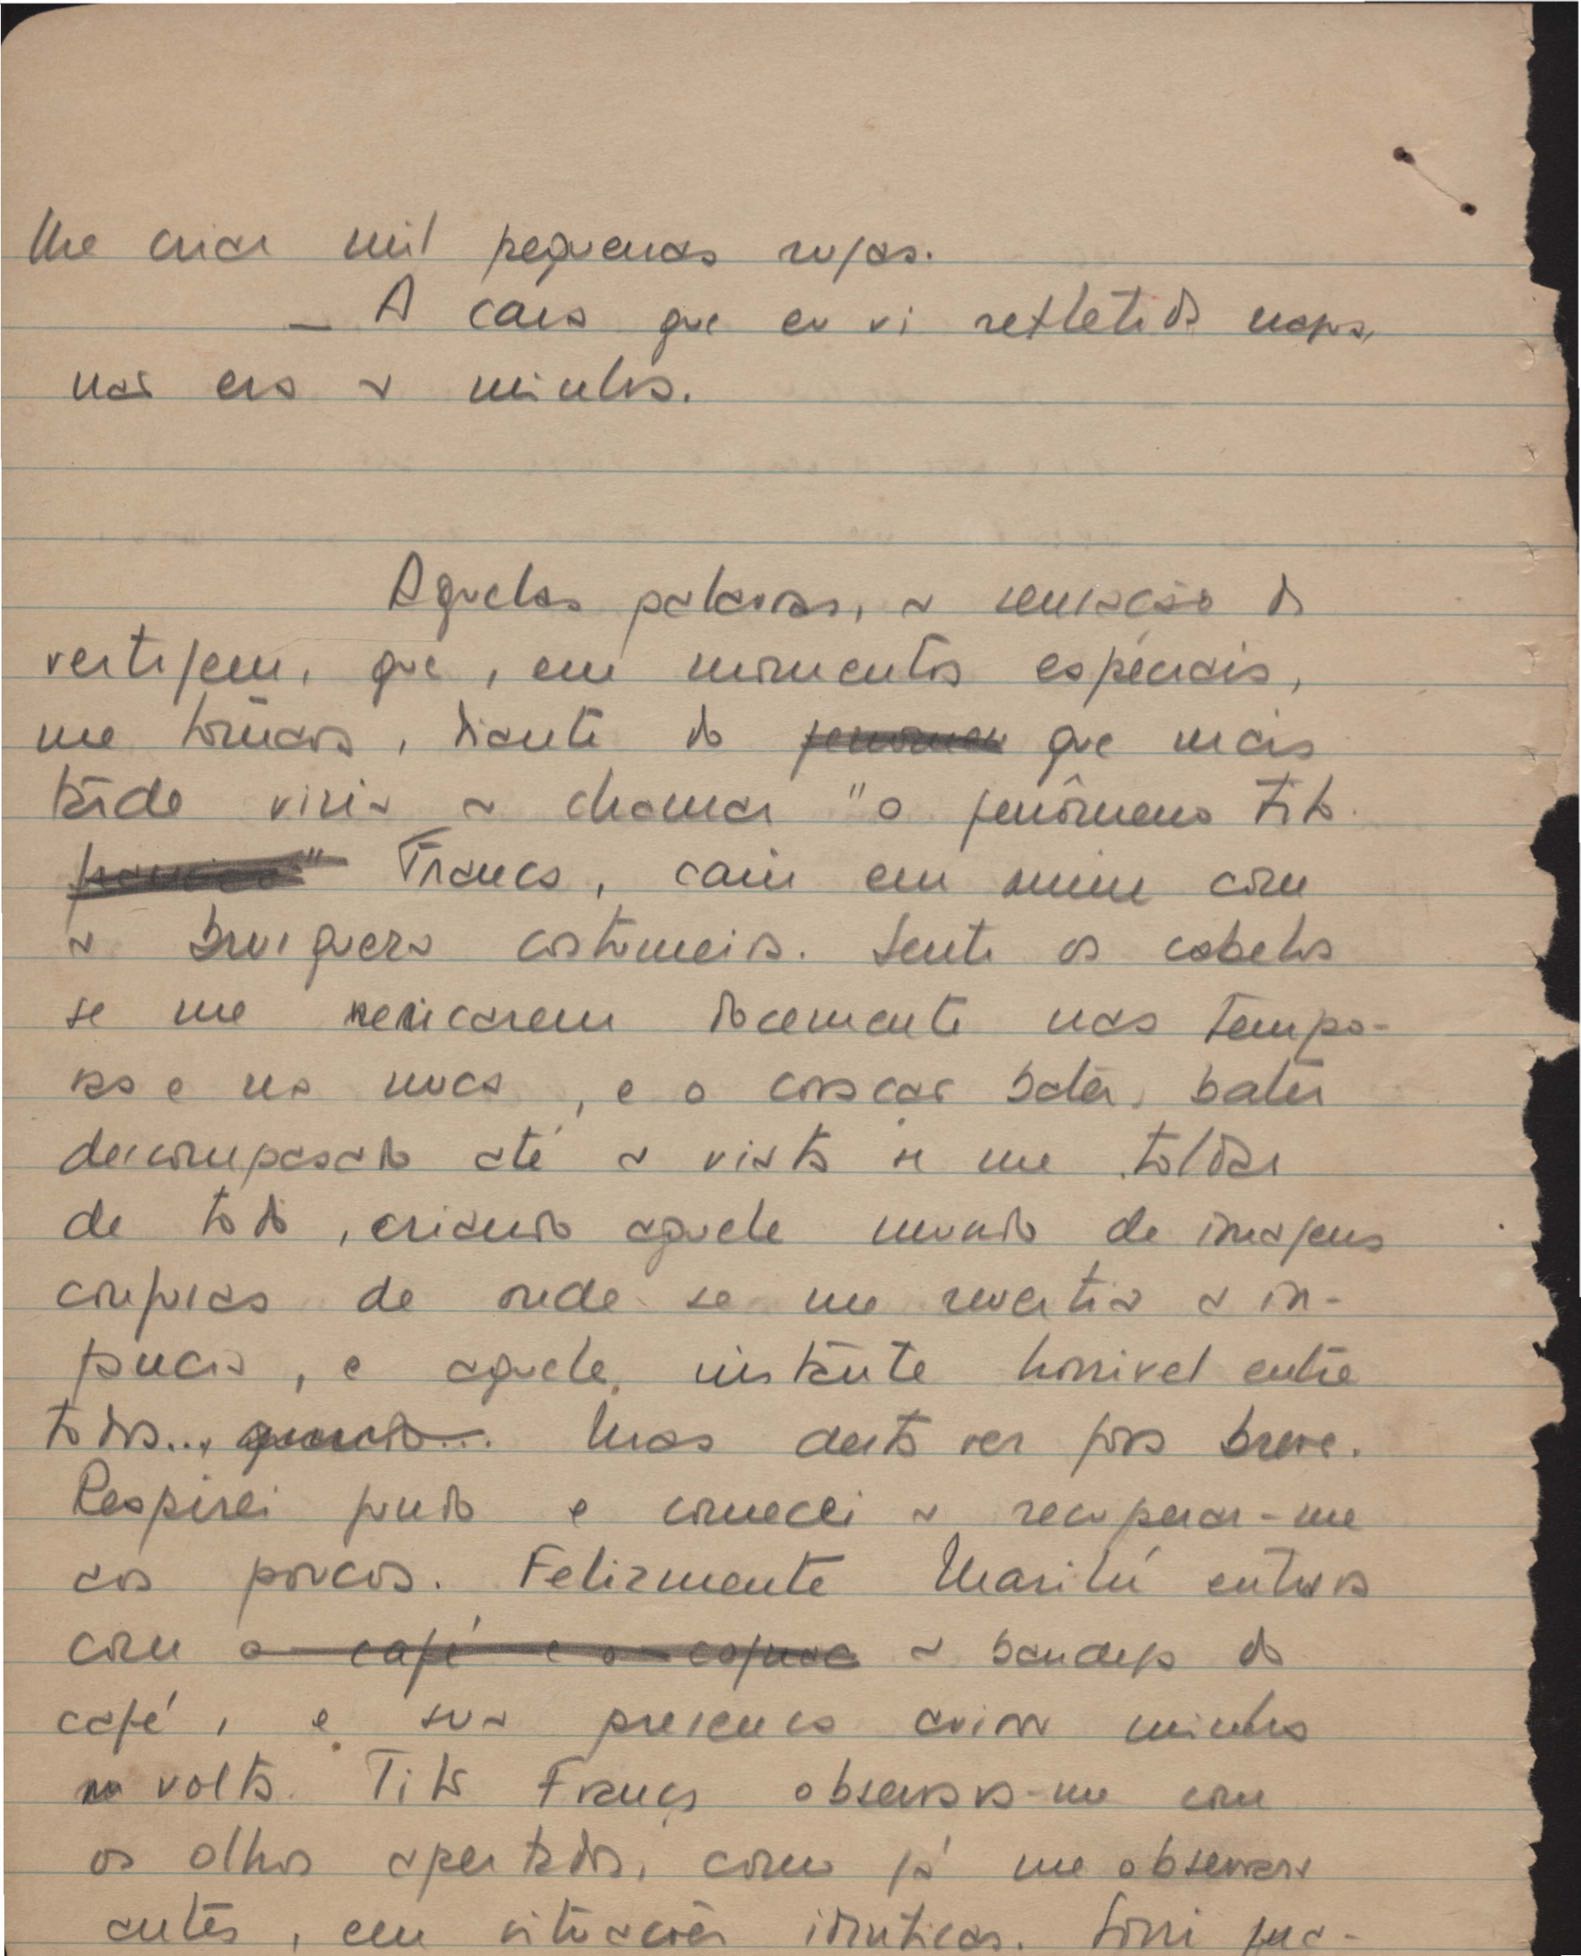 lhe criar mil pequenas rugas.
— A cara que eu vi refletida nagua,
não era a minha.
Aquelas palavras, a sensação da
vertigem, que, em momentos especiais,
me tomava, diante do fenomen que mais
tarde viria a chamar "o fenômeno Tito
França, caiu em mim com
a brusquera costumeira. Senti os cabelos
se me eriçarem docemente nas tempo-
ras e na nuca, e o coração bater, bater
descompasado até a vista se me toldar
de todo, criando aquele mundo de imagens
confusas de onde se me revertia a in-
fancia, e aquele instante horrivel entre
todos... quando... Mas desta vez fora breve.
Respirei fundo e comecei a recuperar-me
aos poucos. Felizmente Marilú entrava
com o café e o cognac a bandeja do
café, e sua presença avivou minha
volta. Tito França observava-me com
os olhos apertados, como já me observara
antes, em situações identicas. Sorri